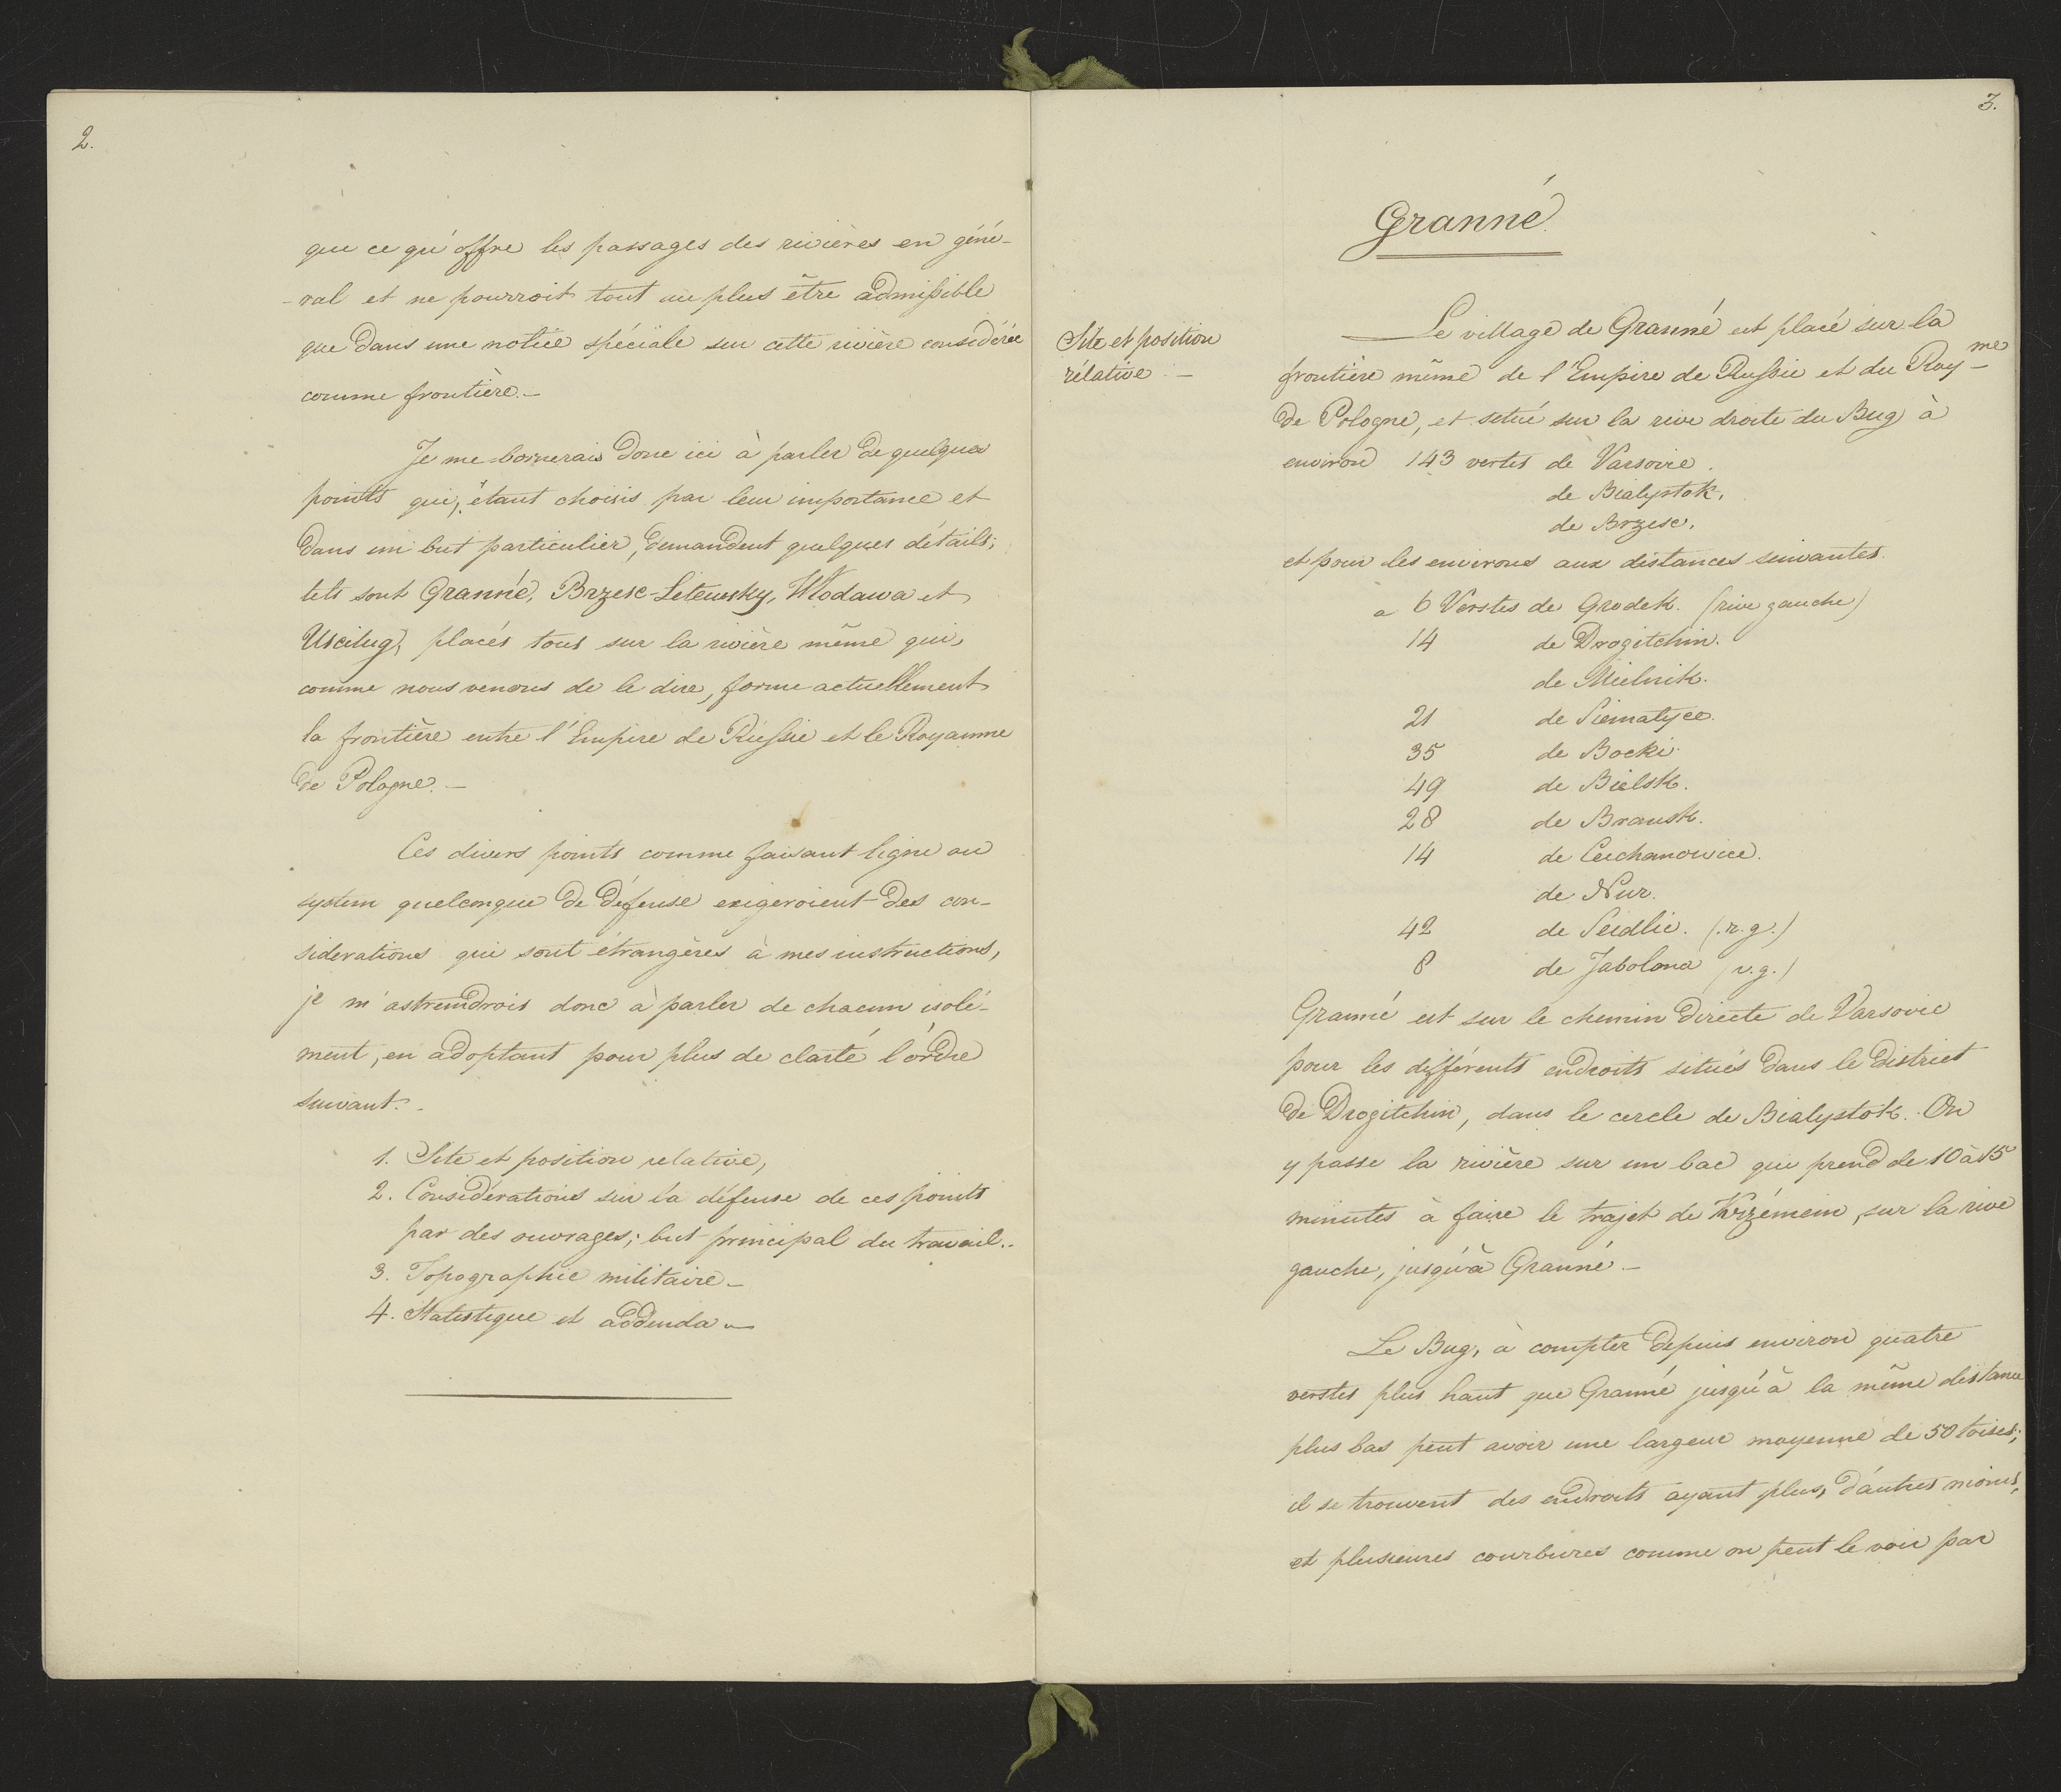 2.
que ce qu'offre les passages des rivières en géné-
-ral et ne pourroit tout au plus être admissible
que dans une notice spéciale sur cette rivière considérée
comme frontière.-
Je me bornerais donc ici à parler de quelques
points qui, étant choisis par leur importance et
dans un but particulier, demandent quelques détails;
tels sont Granné, Brzesc-Litewsky, Wlodawa et
Uscilug, placés tous sur la rivière même qui,
comme nous venons de le dire, forme actuellement
la frontière entre l'Empire de Russie et le Royaume
de Pologne.-
Ces divers points comme faisant ligne ou
system quelconque de défense exigeroient des con-
siderations qui sont étrangères à mes instructions,
je m'astreindrois donc à parler de chacun isolé-
ment, en adoptant pour plus de clarté l'ordre
suivant.-
1. Site et position relative,
2. Considérations sur la défense de ces points
par des ouvrages; but principal du travail.-
3. Topographie militaire-
4. Statistique et addenda-
3.
Granné.
Site et position
rélative.-
Le village de Granné est placé sur la
frontière même de l'Empire de Russie et du Roy-me
de Pologne, et situé sur la rive droite du Bug à
environ 143 verstes de Varsovie.
de Bialystok,
de Brzesc,
et pour les environs aux distances suivantes.
a 6 Verstes de Grodek. (rive gauche)
14 de Drogitchin.
de Mielnik.
21 de Siematyce.
35 de Bocki.
49 de Bielsk.
28 de Bransk.
14 de Ciechanowice.
de Nur.
42 de Seidlic. (r.g.)
8 de Jabolona (r.g.)
Granné est sur le chemin directe de Varsovie
pour les différents endroits situés dans le district
de Drogitchin, dans le cercle de Bialystok. On
y passe la rivière sur un bac qui prend de 10 à 15
minutes à faire le trajet de Krzémein, sur la rive
gauche, jusqu'à Granné.-
Le Bug, à compter depuis environ quatre
verstes plus haut que Granné jusqu'à la même distance
plus bas peut avoir une largeur moyenne de 50 toises;
il se trouvent des endroits ayant plus, d'autres moins,
et plusieures courbures comme on peut le voir par